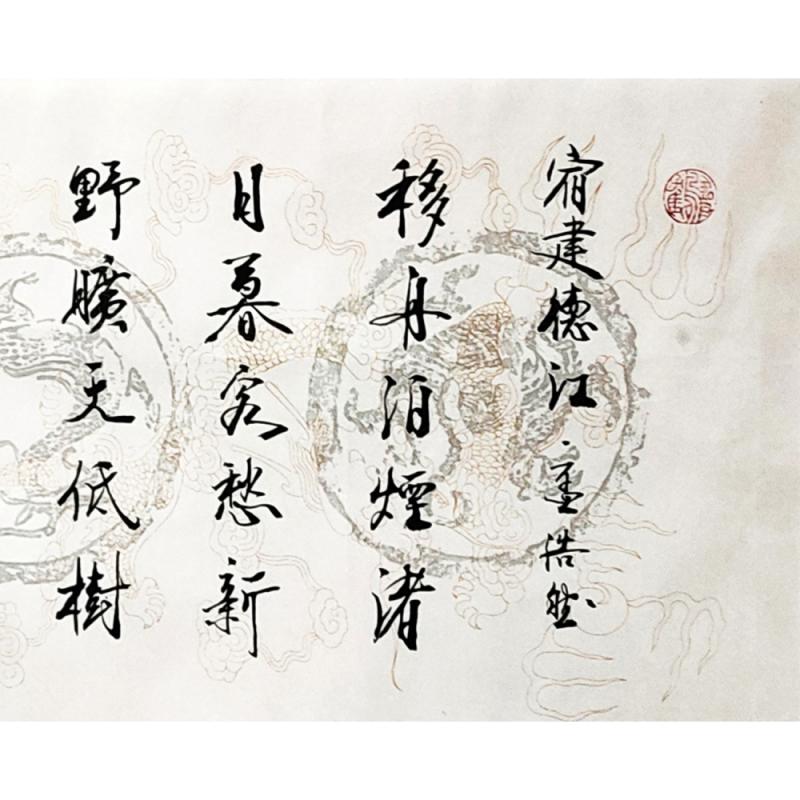 宿建德江·孟浩然
移舟泊煙渚
日暮客愁新
野曠天低樹